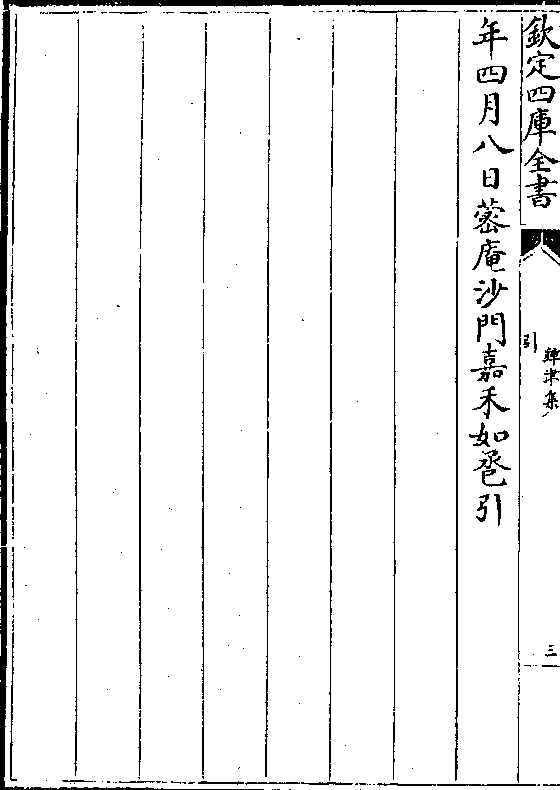 欽定四庫全書
鐔津集
引
三
年四月八日蔤庵沙門嘉禾如巹引